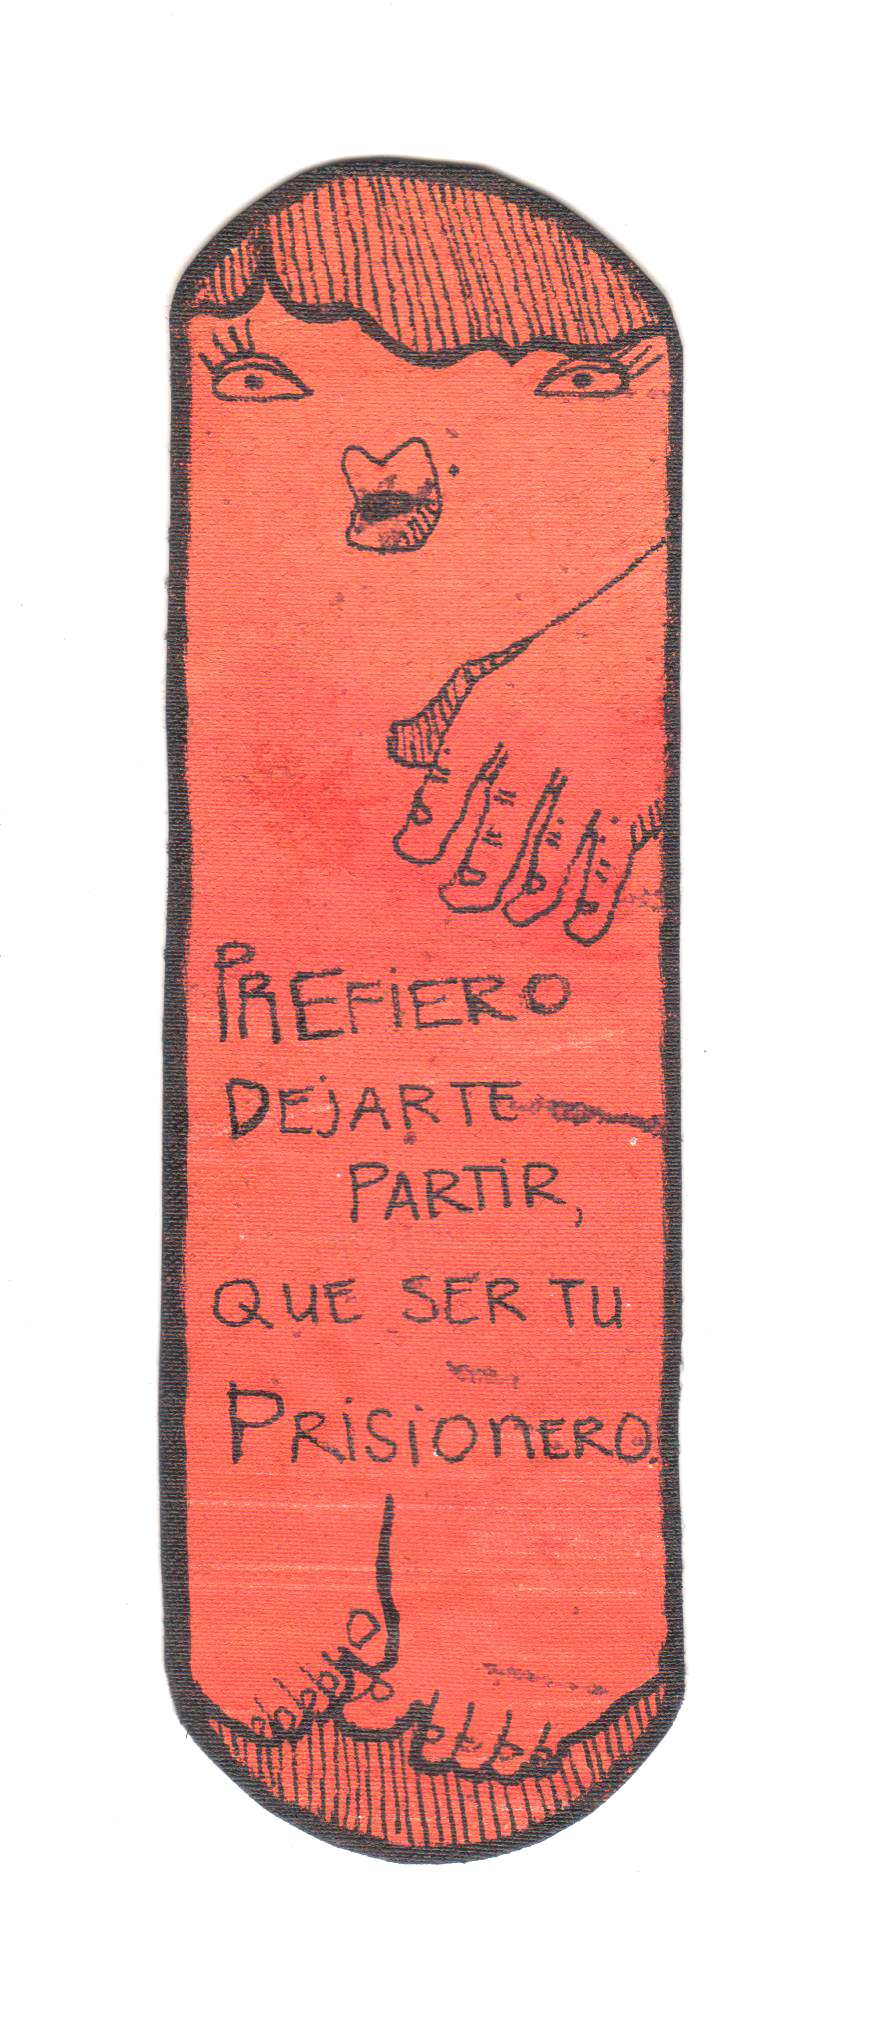 PREFIERO
DEJARTE
PARTIR,
QUE SER TU
PRISIONERO.